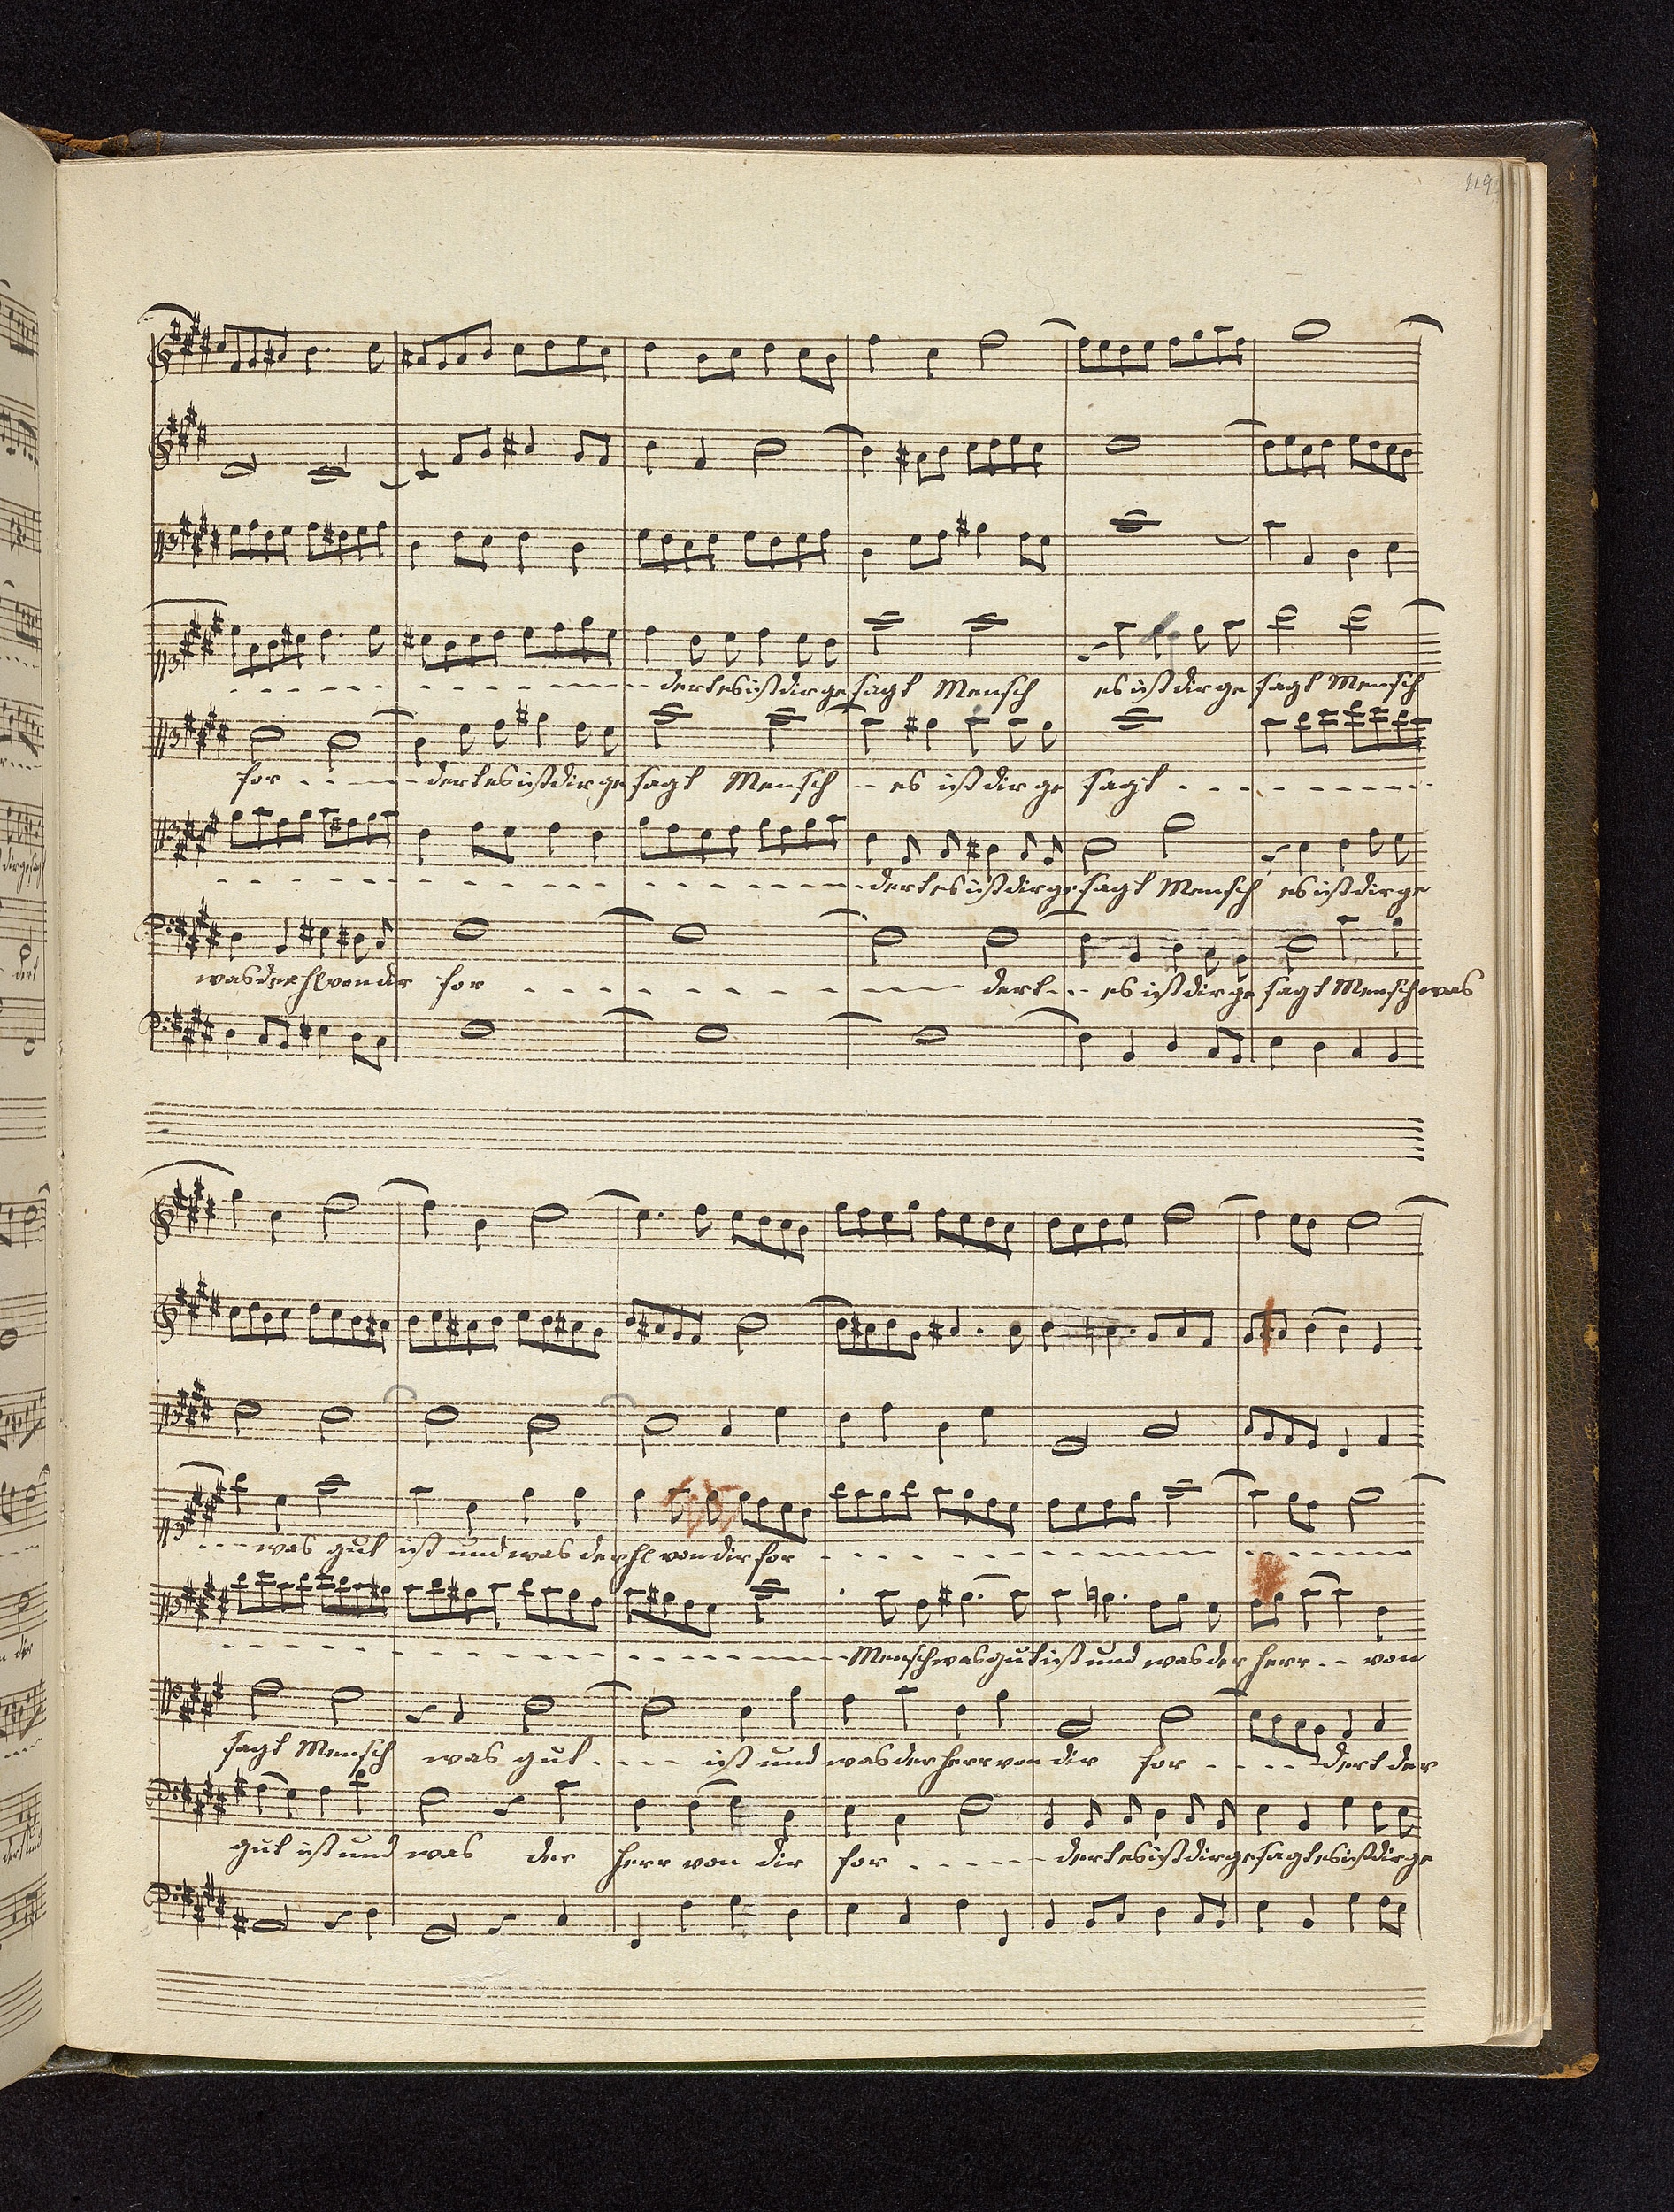 119
dert es ist dir ge sagt Mensch es ist dir ge sagt Mensch
for - - - dert es ist dir ge sagt Mensch - - es ist dir ge sagt - - -
- - - dert es ist dir ge sagt Mensch es ist dir ge
was der H von dir for - - - dert - - es ist dir ge sagt Mensch was
- - - was gut ist und was der H von dir for - - -
- - - Mensch was gut ist und was der Herr - - von
sagt Mensch was gut - - - ist und was der Herr von dir for - - - dert der
gut ist und was der Herr von dir for - - - dert es ist dir ge sagt es ist dir ge